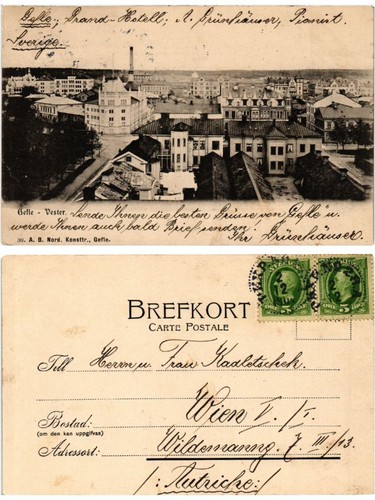 Gefle, Grand-Hotell; A. Grünhäuser, Pianist.
Sverige.
Gefle - Vester.
Sende Ihnen die besten Grüsse von Gefle u.
werde Ihnen auch bald Brief senden!
Ihr Grünhäuser.
30. A. B. Nord. Konsttr., Gefle.
BREFKORT
CARTE POSTALE
Till Herrn u. Frau Kadletschek.
Wien V./I.
Bostad:
(om den kan uppgifvas)
Adressort: Wildemanng. 7. III/13.
/: Autriche :/